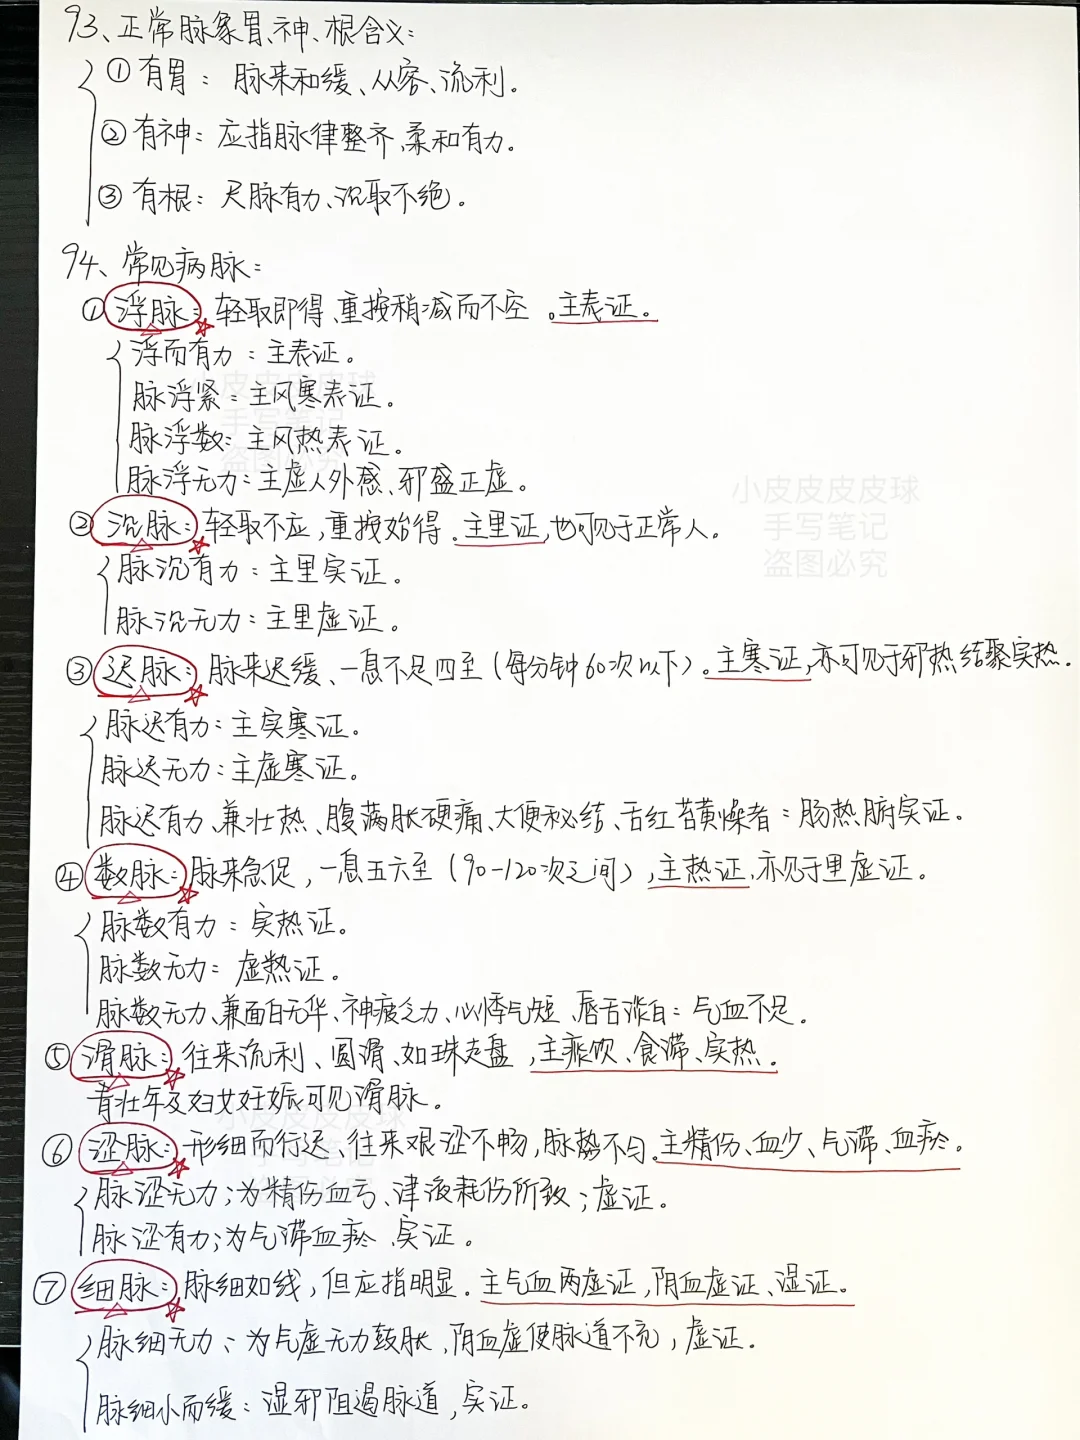 93、正常脉象胃、神、根含义：
①有胃：脉来和缓、从容、流利。
②有神：应指脉律整齐、柔和有力。
③有根：尺脉有力、沉取不绝。
94、常见病脉：
①浮脉：轻取即得、重按稍减而不空。主表证。
浮而有力：主表证。
脉浮紧：主风寒表证。
脉浮数：主风热表证。
脉浮无力：主虚人外感、邪盛正虚。
②沉脉：轻取不应，重按始得、主里证，也可见于正常人。
脉沉有力：主里实证。
脉沉无力：主里虚证。
③迟脉：脉来迟缓、一息不足四至（每分钟60次以下）。主寒证，亦可见于邪热结聚实热。
脉迟有力：主实寒证。
脉迟无力：主虚寒证。
脉迟有力、兼壮热、腹满胀硬痛、大便秘结、舌红苔黄燥者：肠热腑实证。
④数脉：脉来急促，一息五六至（90-120次之间），主热证，亦见于里虚证。
脉数有力：实热证。
脉数无力：虚热证。
脉数无力、兼面白无华、神疲乏力、心悸气短、唇舌淡白：气血不足。
⑤滑脉：往来流利、圆滑、如珠走盘，主痰饮、食滞、实热。
青壮年及妇女妊娠可见滑脉。
⑥涩脉：形细而行迟、往来艰涩不畅，脉势不匀。主精伤、血少、气滞、血瘀。
脉涩无力；为精伤血亏、津液耗伤所致；虚证。
脉涩有力；为气滞血瘀、实证。
⑦细脉：脉细如线，但应指明显。主气血两虚证，阴血虚证、湿证。
脉细无力：为气虚无力鼓胀，阴血虚使脉道不充，虚证。
脉细小而缓：湿邪阻遏脉道，实证。
小皮皮皮皮球
手写笔记
盗图必究